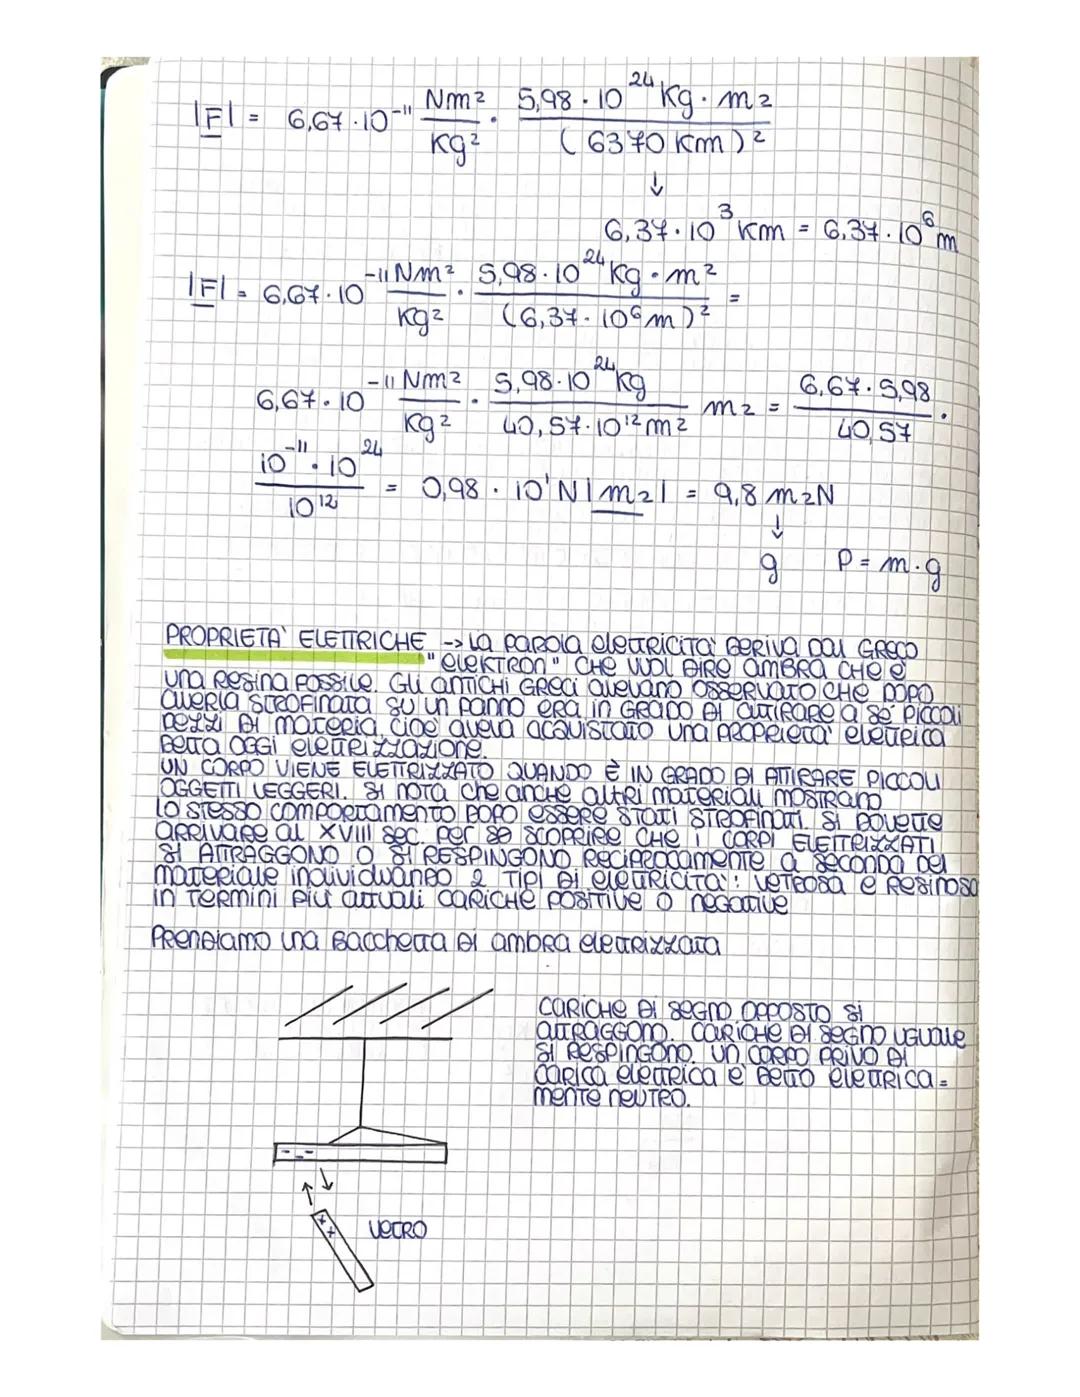 |F| = 6,67 · 10⁻¹¹ Nm²/Kg² · 5,98 · 10²⁴ Kg · m₂ / (6370 Km)²
↓
6,37 · 10³ Km = 6,37 · 10⁶ m
|F| = 6,67 · 10⁻¹¹ Nm²/Kg² · 5,98 · 10²⁴ Kg · m² / (6,37 · 10⁶ m)² =
6,67 · 10⁻¹¹ Nm²/Kg² · 5,98 · 10²⁴ Kg / 40,57 · 10¹² m² m₂ = 6,67 · 5,98 / 40,57 ·
10⁻¹¹ · 10²⁴ / 10¹² = 0,98 · 10¹ N |m₂| = 9,8 m₂N
↓
g P = m · g
PROPRIETA' ELETTRICHE -> La parola elettricità deriva dal greco
"elektron" che vuol dire ambra che è
una resina fossile. Gli antichi greci avevano osservato che dopo
averla strofinata su un panno era in grado di attirare a sé piccoli
pezzi di materia, cioè aveva acquistato una proprietà elettrica
detta oggi elettrizzazione.
UN CORPO VIENE ELETTRIZZATO QUANDO È IN GRADO DI ATTIRARE PICCOLI
OGGETTI LEGGERI. Si nota che anche altri materiali mostrano
lo stesso comportamento dopo essere stati strofinati. Si dovette
arrivare al XVIII sec. per scoprire che i corpi elettrizzati
SI ATTRAGGONO O SI RESPINGONO reciprocamente a seconda del
materiale individuando 2 tipi di elettricità: vetrosa e resinosa
in termini più attuali cariche positive o negative
Prendiamo una bacchetta di ambra elettrizzata
Cariche di segno opposto si
attraggono. Cariche di segno uguale
si respingono. Un corpo privo di
carica elettrica è detto elettrica=
mente neutro.
- - -
+ +
+
vetro